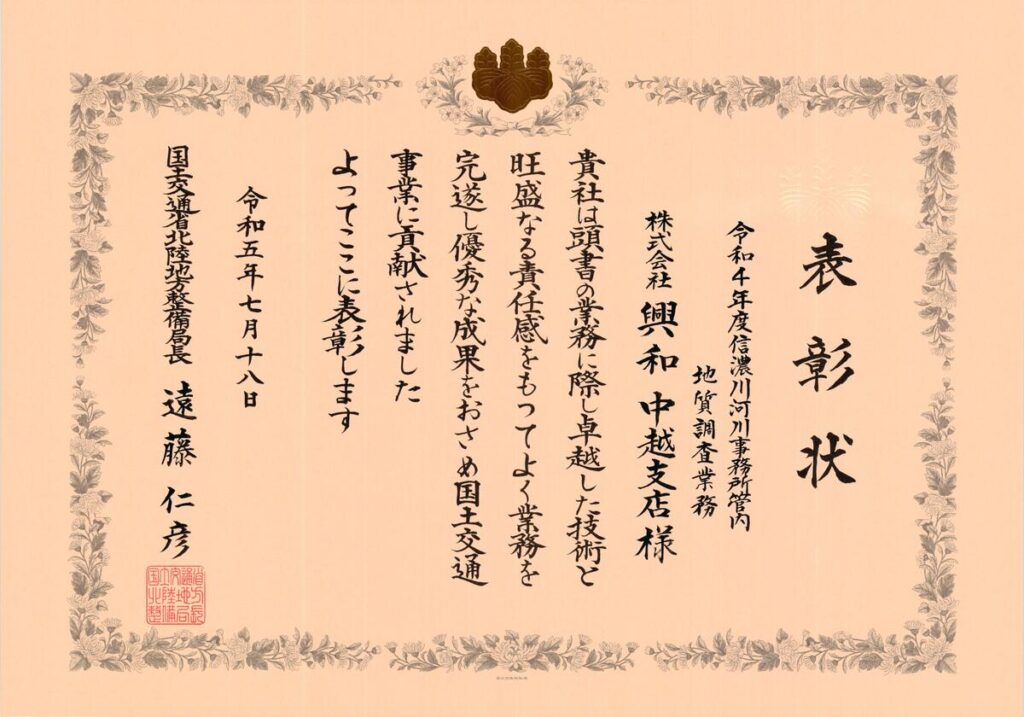 表彰状
令和4年度信濃川河川事務所管内
地質調査業務
株式会社 興和 中越支店様
貴社は頭書の業務に際し卓越した技術と
旺盛なる責任感をもつてよく業務を
完遂し優秀な成果をおさめ国土交通
事業に貢献されました
よってここに表彰します
令和五年七月十八日
国土交通省北陸地方整備局長 遠藤 仁彦